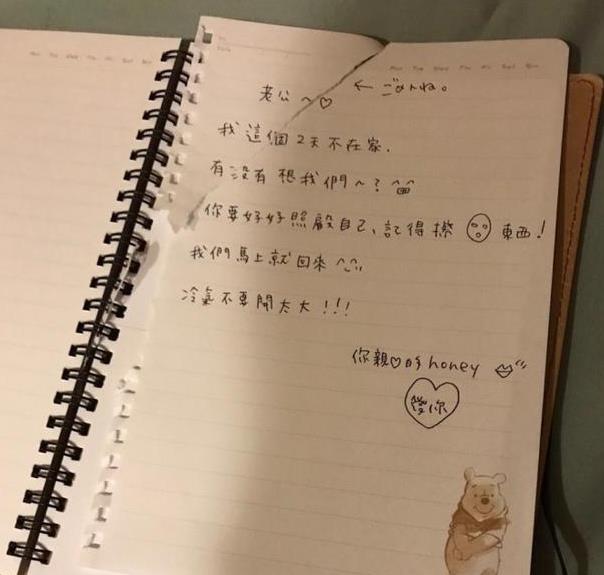 老公～♡ ← ごめんね。
我這個2天不在家.
有沒有想我們～? ^^
你要好好照顧自己、記得擦 東西!
我們馬上就回來 ^^
冷氣不要開太大!!!
你親♡的honey
愛你